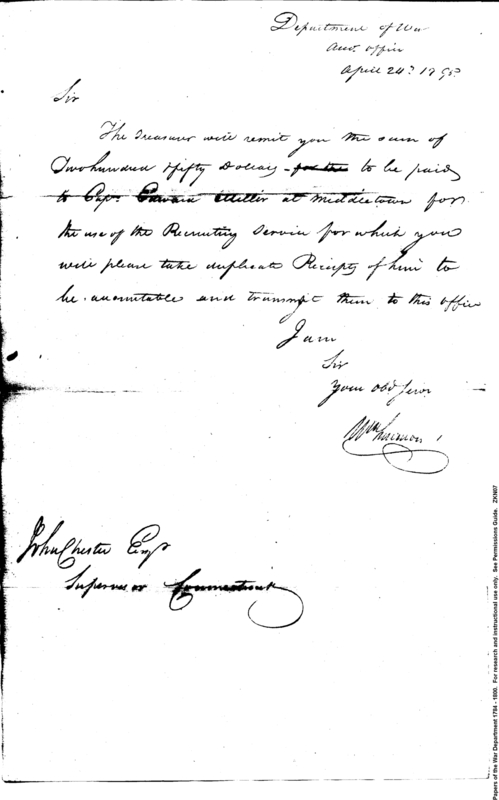 Department of War
Acct. Office
April 24th 1795
Sir
The Treasurer will remit you the sum of
Two hundred & fifty Dollars to be paid
to Capt. Edward Miller at Middletown for
the use of the Recruiting Service for which you
will please take duplicate Receipts of him to
be accountable and transmit them to this office
I am
Sir
Your Obd. Serv.
Wm Simmons
John Chester Esqr
Supervisor Connecticut
Papers of the War Department 1784 - 1800. For research and instructional use only. See Permissions Guide. ZKN07